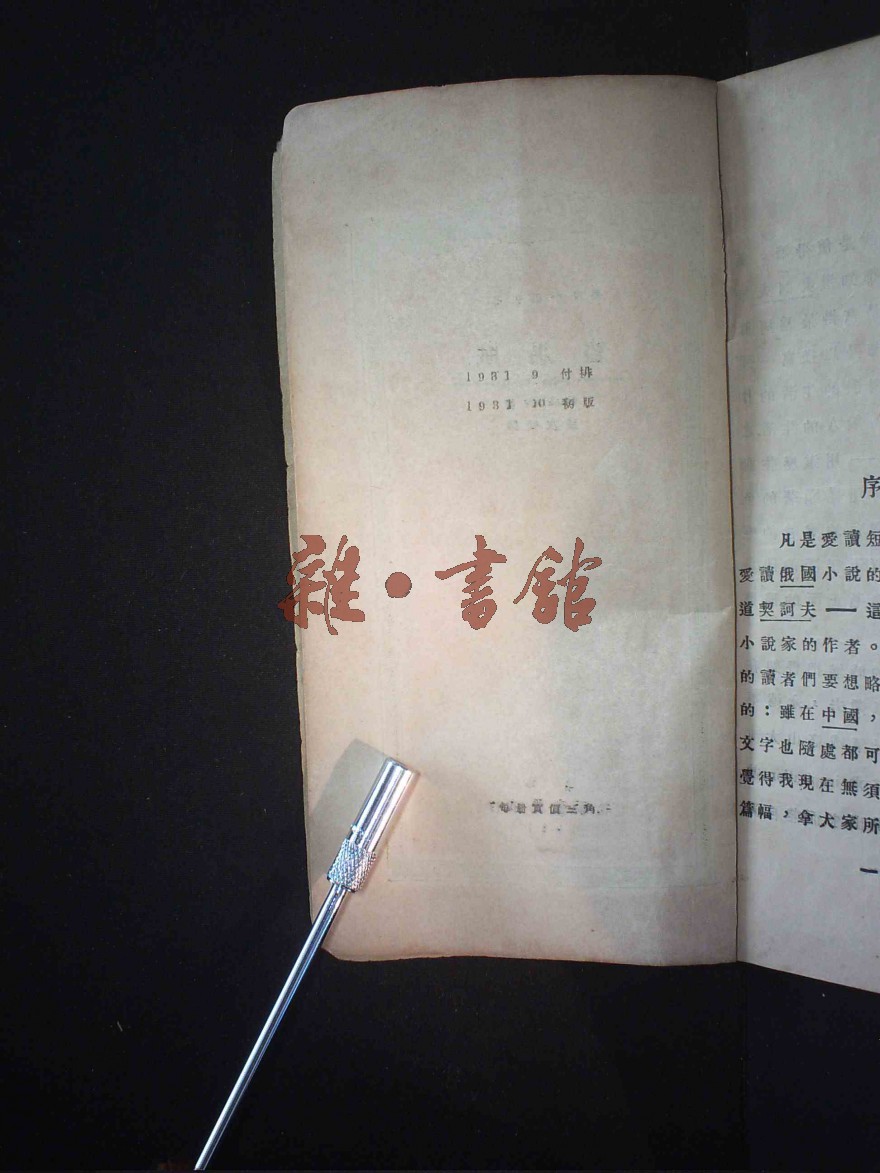 1931 9 付排
1931 10 初版
雜·書館
每冊實價三角
序
凡是愛讀短
愛讀俄國小說的
道契訶夫——這
小說家的作者。
的讀者們要想略
的：雖在中國，
文字也隨處都可
覺得我現在無須
篇幅，拿大家所
一